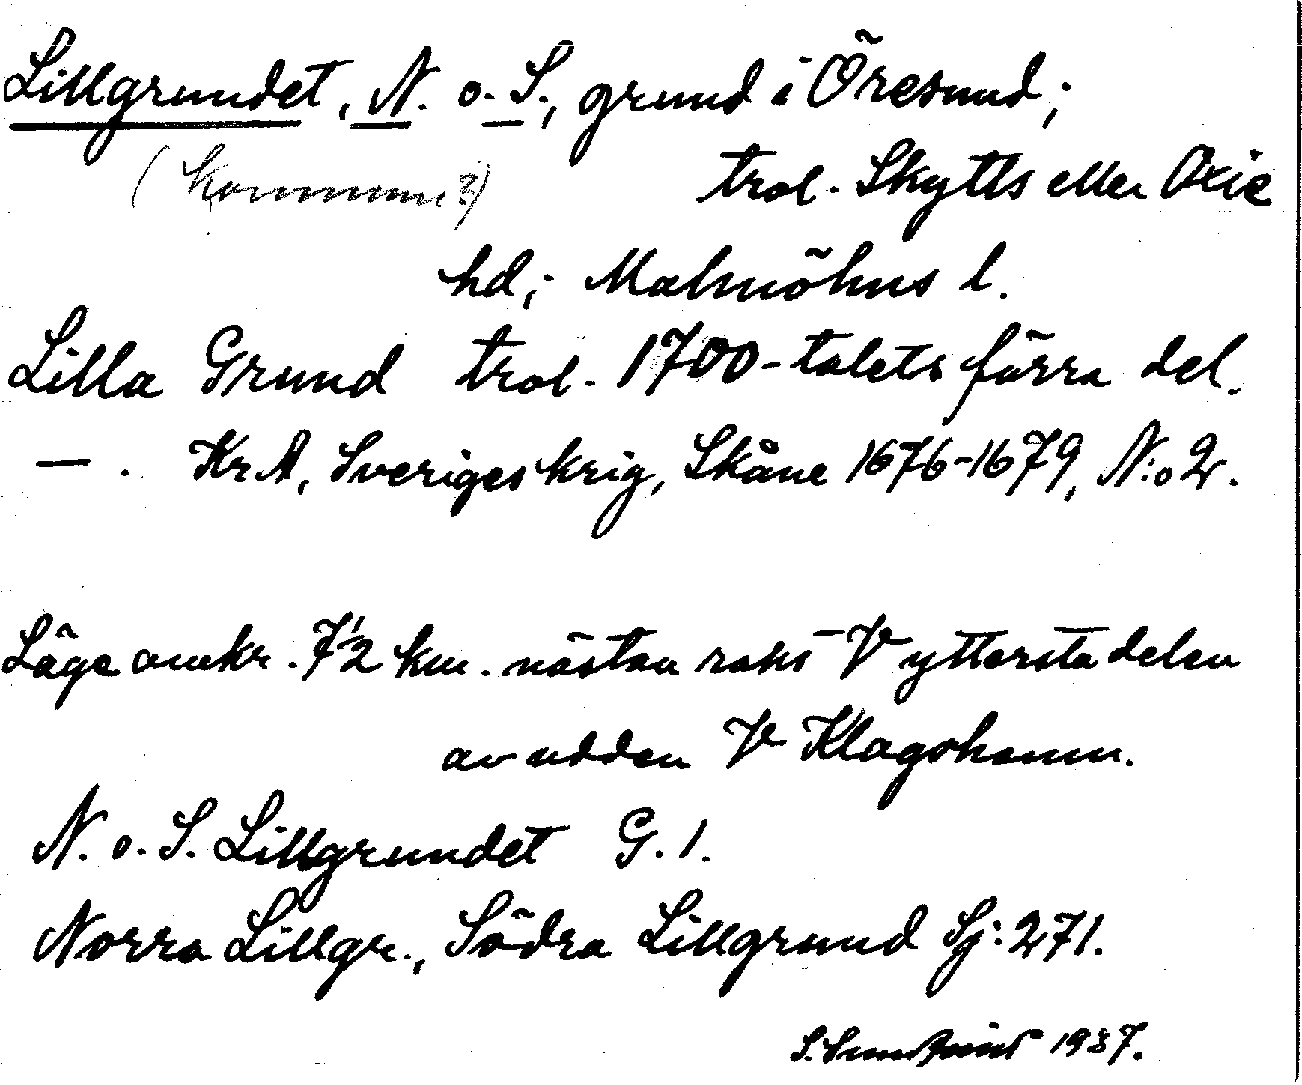 Lillgrundet, N. o. S., grund i Öresund;
(kommun?) trol. Skytts eller Oxie
hd; Malmöhus l.
Lilla Grund trol. 1700-talets förra del.
— . KrA, Sveriges krig, Skåne 1676-1679, N:o 2.
Läge omkr. 7 1/2 km. nästan rakt V yttersta delen
av udden V Klagshamn.
N. o. S. Lillgrundet G. 1.
Norra Lillgr., Södra Lillgrund Sj: 271.
S. 1937.